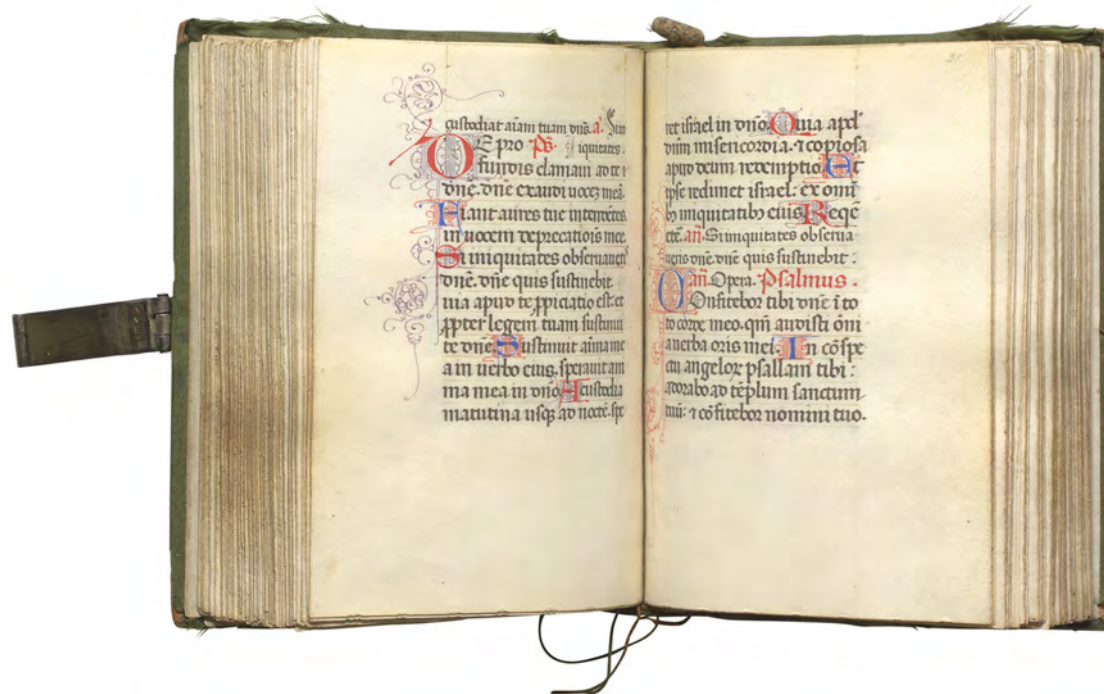 custodiat aiam tuam dns. a. Si in
DE pro ps iniquitates.
fundis clamavi ad te
dne. dne exaudi uocez mea.
Fiant aures tue intendetes
in uocem deprecatiois mee.
Si iniquitates obseruaueris
dne. dne quis sustinebit
uia apud te ppiciatio est. et
ppter legem tuam sustinui
te dne. Sustinuit aima me
a in uerbo eius. sperauit ani
ma mea in dno. A custodia
matutina usqz ad nocte. spe
21
ret israel in dno. Quia apd
dnm misericordia. ⁊ copiosa
apud deum redemptio. Et
ipse redimet israel: ex omi
bz iniquitatibz eius. Reqe
ete. an. Si iniquitates obserua
ueris dne. dne quis sustinebit:
an. Opera. Psalmus.
COnfitebor tibi dne i to
to corde meo. qm audisti om
a uerba oris mei. In cospe
ctu angeloꝝ psallam tibi:
adorabo ad templum sanctum
tuu: ⁊ cofitebor nomini tuo.